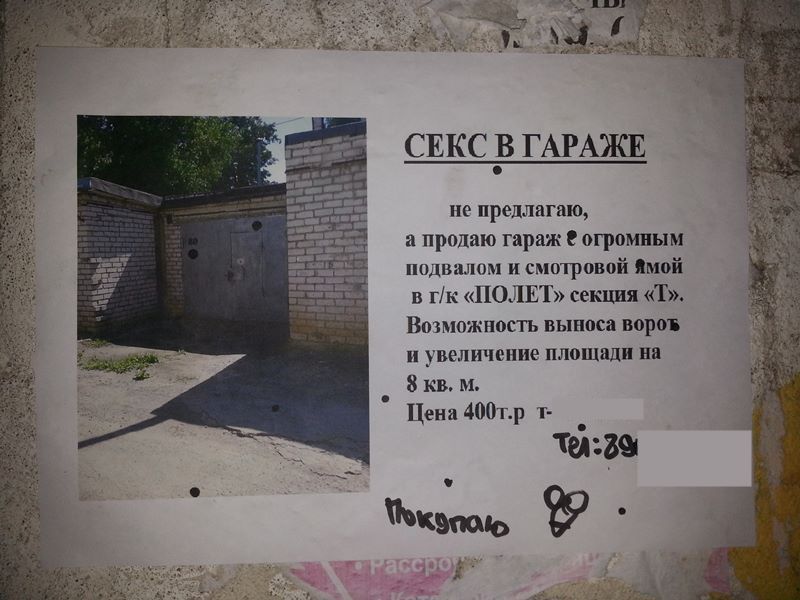 СЕКС В ГАРАЖЕ
не предлагаю,
а продаю гараж с огромным
подвалом и смотровой ямой
в г/к «ПОЛЕТ» секция «Т».
Возможность выноса ворот
и увеличение площади на
8 кв. м.
Цена 400т.р т-
Тел:89
Покупаю
80
• Рассро